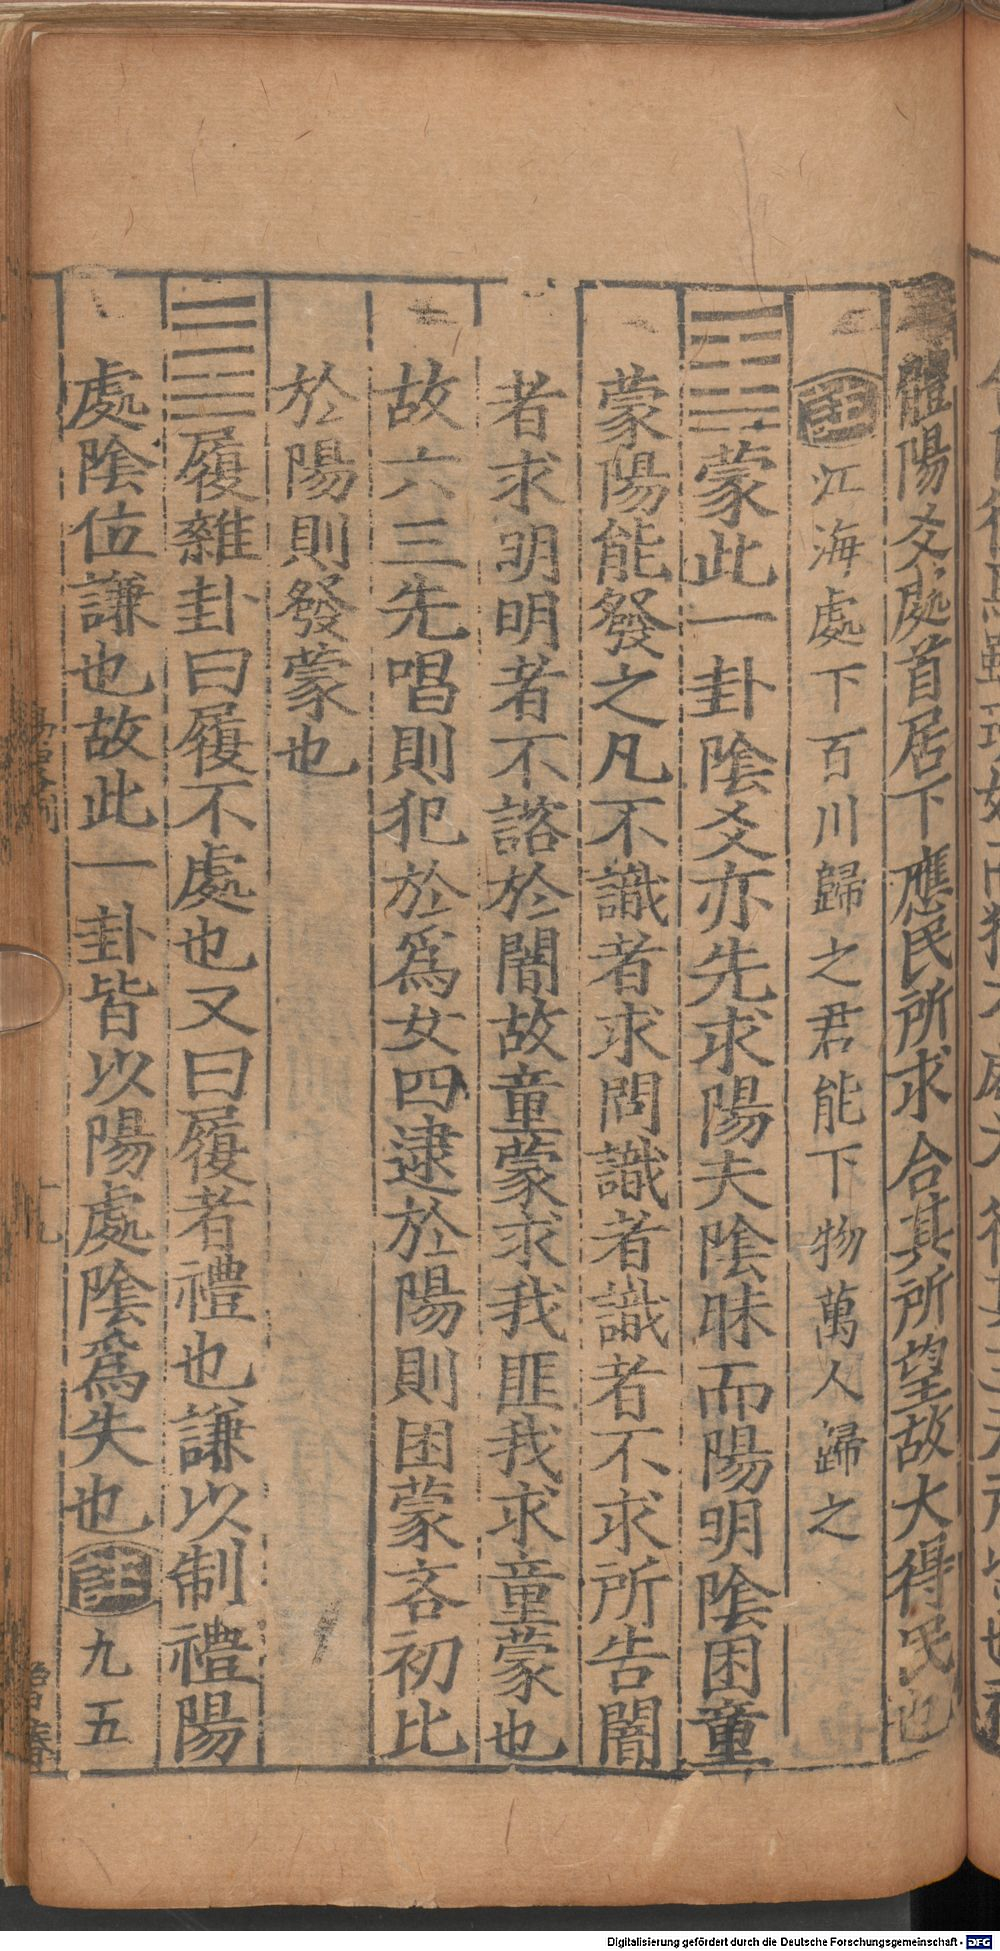 體陽爻處首居下應民所求合其所望故大得民也
註江海處下百川歸之君能下物萬人歸之
䷃蒙此一卦陰爻亦先求陽夫陰昧而陽明陰困童
蒙陽能發之凡不識者求問識者識者不求所告闇
者求明明者不諮於闇故童蒙求我匪我求童蒙也
故六三先唱則犯於爲女四逮於陽則困蒙吝初比
於陽則發蒙也
䷉履雜卦曰履不處也又曰履者禮也謙以制禮陽
處陰位謙也故此一卦皆以陽處陰爲失也註九五
Digitalisierung gefördert durch die Deutsche Forschungsgemeinschaft - DFG